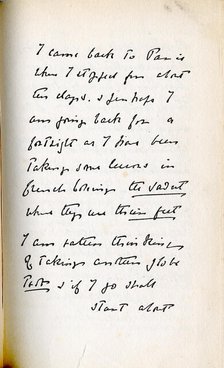 I came back to Paris
when I stopped for about
ten days. & perhaps I
am going back for a
fortnight as I have been
taking some lessons in
french boxing the savat
where they use their feet
I am rather thinking
of taking another globe
Trot & if I go shall
start about